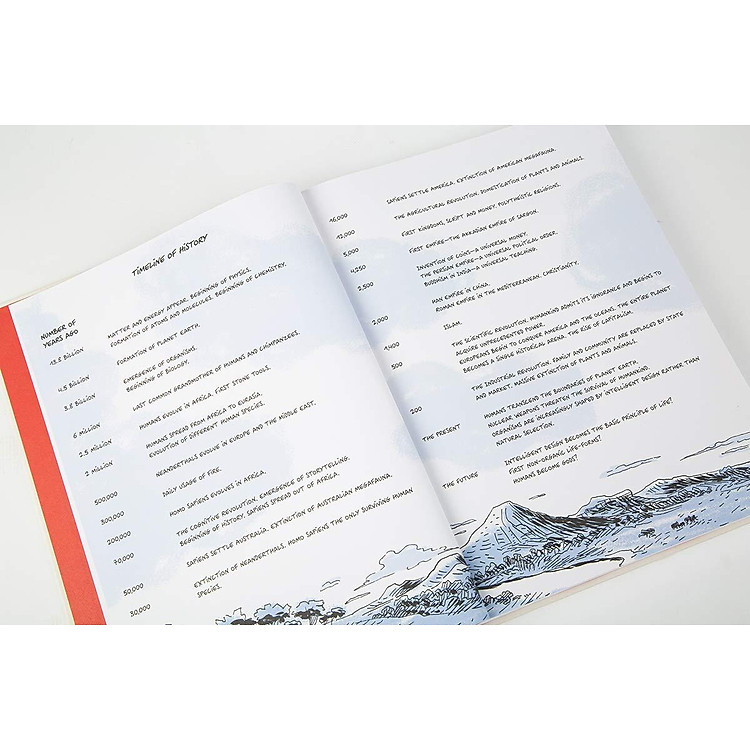 TIMELINE OF HISTORY
NUMBER OF
YEARS AGO
13.8 BILLION MATTER AND ENERGY APPEAR. BEGINNING OF PHYSICS.
FORMATION OF ATOMS AND MOLECULES. BEGINNING OF CHEMISTRY.
4.5 BILLION FORMATION OF PLANET EARTH.
3.8 BILLION EMERGENCE OF ORGANISMS.
BEGINNING OF BIOLOGY.
6 MILLION LAST COMMON GRANDMOTHER OF HUMANS AND CHIMPANZEES.
2.5 MILLION HUMANS EVOLVE IN AFRICA. FIRST STONE TOOLS.
2 MILLION HUMANS SPREAD FROM AFRICA TO EURASIA.
EVOLUTION OF DIFFERENT HUMAN SPECIES.
500,000 NEANDERTHALS EVOLVE IN EUROPE AND THE MIDDLE EAST.
300,000 DAILY USAGE OF FIRE.
200,000 HOMO SAPIENS EVOLVES IN AFRICA.
70,000 THE COGNITIVE REVOLUTION. EMERGENCE OF STORYTELLING.
BEGINNING OF HISTORY. SAPIENS SPREAD OUT OF AFRICA.
50,000 SAPIENS SETTLE AUSTRALIA. EXTINCTION OF AUSTRALIAN MEGAFAUNA.
30,000 EXTINCTION OF NEANDERTHALS. HOMO SAPIENS THE ONLY SURVIVING HUMAN
SPECIES.
16,000 SAPIENS SETTLE AMERICA. EXTINCTION OF AMERICAN MEGAFAUNA.
12,000 THE AGRICULTURAL REVOLUTION. DOMESTICATION OF PLANTS AND ANIMALS.
5,000 FIRST KINGDOMS, SCRIPT AND MONEY. POLYTHEISTIC RELIGIONS.
4,250 FIRST EMPIRE—THE AKKADIAN EMPIRE OF SARGON.
2,500 INVENTION OF COINS—A UNIVERSAL MONEY.
THE PERSIAN EMPIRE—A UNIVERSAL POLITICAL ORDER.
BUDDHISM IN INDIA—A UNIVERSAL TEACHING.
2,000 HAN EMPIRE IN CHINA.
ROMAN EMPIRE IN THE MEDITERRANEAN. CHRISTIANITY.
1,400 ISLAM.
500 THE SCIENTIFIC REVOLUTION. HUMANKIND ADMITS ITS IGNORANCE AND BEGINS TO
ACQUIRE UNPRECEDENTED POWER.
EUROPEANS BEGIN TO CONQUER AMERICA AND THE OCEANS. THE ENTIRE PLANET
BECOMES A SINGLE HISTORICAL ARENA. THE RISE OF CAPITALISM.
200 THE INDUSTRIAL REVOLUTION. FAMILY AND COMMUNITY ARE REPLACED BY STATE
AND MARKET. MASSIVE EXTINCTION OF PLANTS AND ANIMALS.
THE PRESENT HUMANS TRANSCEND THE BOUNDARIES OF PLANET EARTH.
NUCLEAR WEAPONS THREATEN THE SURVIVAL OF HUMANKIND.
ORGANISMS ARE INCREASINGLY SHAPED BY INTELLIGENT DESIGN RATHER THAN
NATURAL SELECTION.
THE FUTURE INTELLIGENT DESIGN BECOMES THE BASIC PRINCIPLE OF LIFE?
FIRST NON-ORGANIC LIFE-FORMS?
HUMANS BECOME GODS?